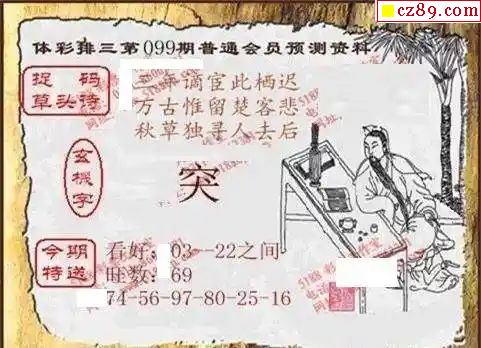 cz89.com
体彩排三第099期普通会员预测资料
捉码
草头诗
谪宦此栖迟
万古惟留楚客悲
秋草独寻人去后
玄機字
突
今期
特送
看好:03--22之间
旺数:69
74-56-97-80-25-16